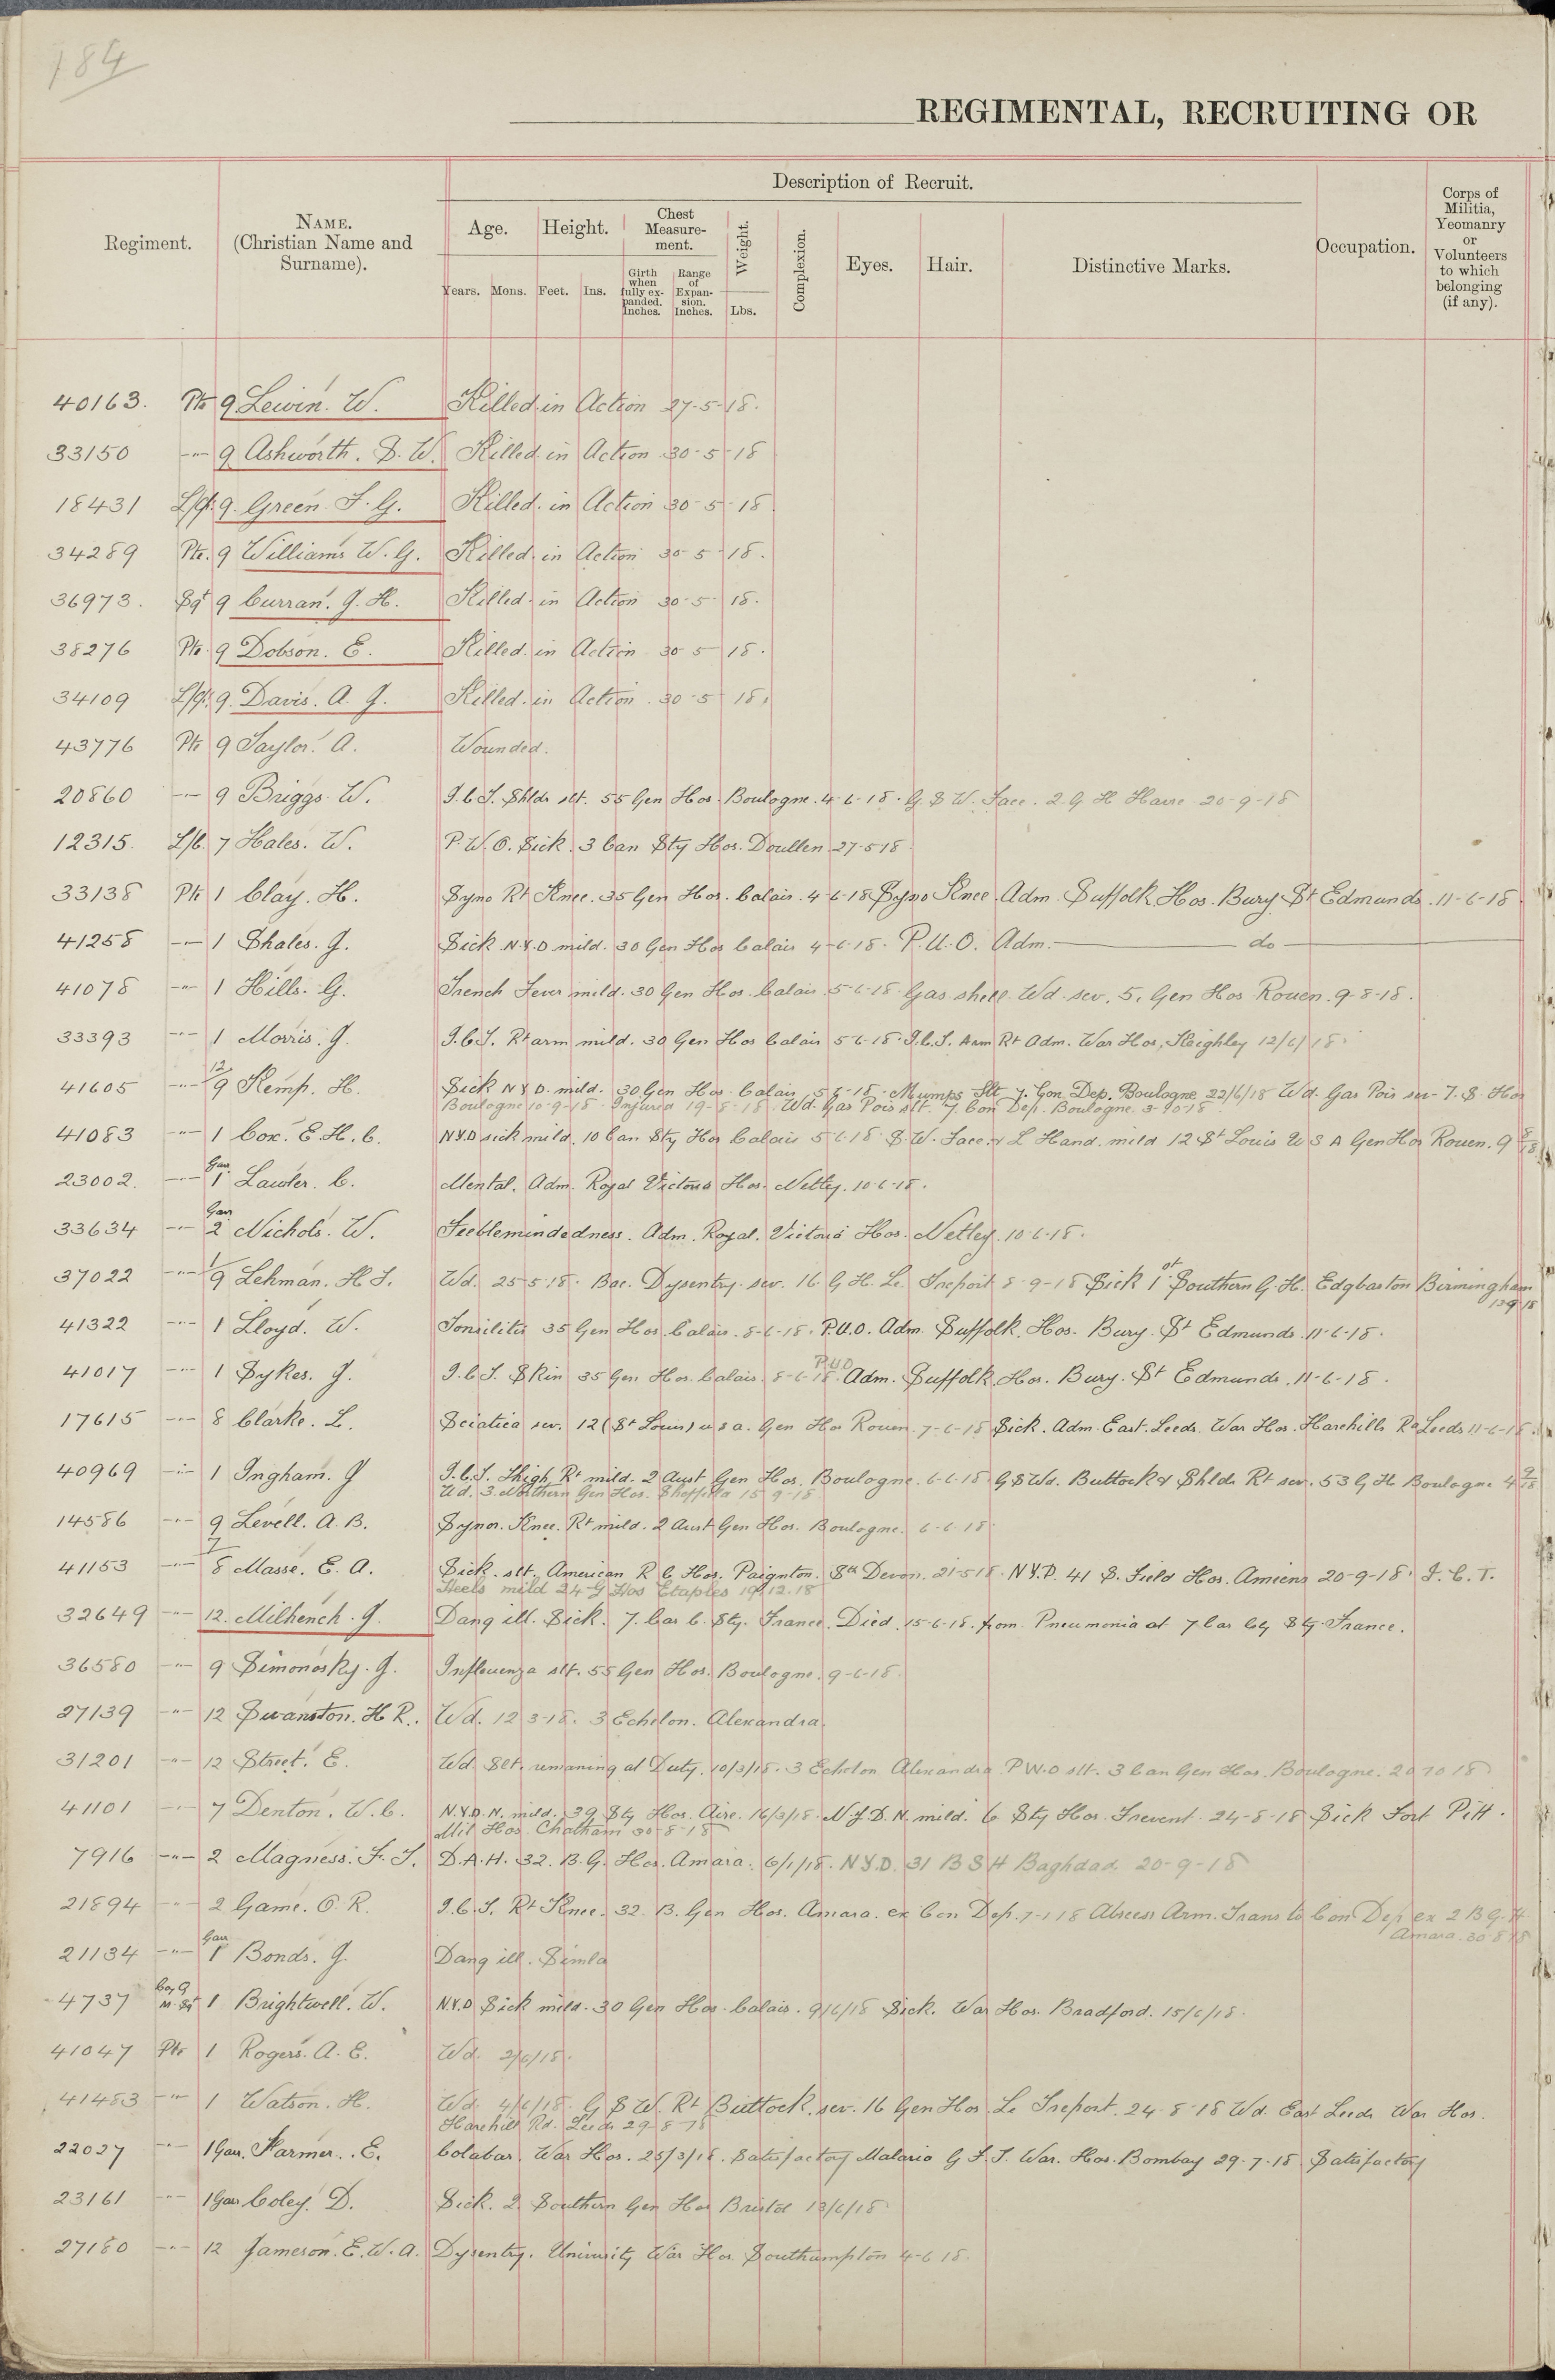 184
REGIMENTAL, RECRUITING OR
Description of Recruit.
Regiment.
NAME.
(Christian Name and
Surname).
Age.
Height.
Chest
Measure-
ment.
Weight.
Complexion.
Eyes.
Hair.
Distinctive Marks.
Occupation.
Corps of
Militia,
Yeomanry
or
Volunteers
to which
belonging
(if any).
Years.
Mons.
Feet.
Ins.
Girth
when
fully ex-
panded.
Inches.
Range
of
Expan-
sion.
Inches.
Lbs.
40163. Pte 9 Lewin. W. Killed in Action 27-5-18.
33150 -"- 9 Ashworth. S. W. Killed in Action 30-5-18
18431 L/Cpl. 9. Green F. G. Killed in Action 30-5-18.
34289 Pte. 9 Williams W. G. Killed in Action 30-5-18.
36973. Sgt 9 Curran. J. H. Killed in Action 30-5-18.
38276 Pte. 9 Dobson. E. Killed in Action 30-5-18.
34109 L/Cpl. 9. Davis. A. J. Killed in Action. 30-5-18.
43776 Pte 9 Taylor. A. Wounded.
20860 -"- 9 Briggs W. I.C.T. Shldr slt. 55 Gen Hos. Boulogne. 4-6-18. G.S.W. Face. 2 G H Havre 20-9-18
12315. L/C. 7 Hales. W. P.W.O. Sick. 3 Can Sty Hos. Doullen 27-5-18
33138 Pte 1 Clay. H. Syno Rt Knee. 35 Gen Hos. Calais. 4-6-18 Syno Knee. Adm. Suffolk Hos. Bury St Edmunds. 11-6-18.
41258 -"- 1 Shales. J. Sick N.Y.D mild. 30 Gen Hos Calais 4-6-18. P.U.O. Adm. — do —
41078 -"- 1 Hills. G. Trench Fever mild. 30 Gen Hos. Calais. 5-6-18 Gas shell Wd sev. 5. Gen Hos Rouen. 9-8-18.
33393 -"- 1 Morris. J. I.C.T. Rt arm mild. 30 Gen Hos Calais 5-6-18. I.C.T. Arm Rt Adm. War Hos, Keighley 12/6/18.
41605 -"- 12/9 Kemp. H. Sick N Y D. mild. 30 Gen Hos. Calais 5-6-18. Mumps Slt 7. Con Dep. Boulogne 22/6/18 Wd. Gas Pois sev 7. S. Hos
Boulogne 10-9-18 Injured 19-8-18. Wd. Gas Pois slt. 7 Con Dep. Boulogne 3-10-18
41083 -"- 1 Cox. E. H. C. N.Y.D sick mild. 10 Can Sty Hos Calais 5-6-18 S.W. Face & L Hand. mild 12 St Louis U S A Gen Hos Rouen. 9 8/18
23002. -"- Garr 1 Lawler. C. Mental. Adm. Royal Victoria Hos. Netley. 10-6-18.
33634 -"- Garr 2 Nichols. W. Feeblemindedness. Adm. Royal. Victoria Hos. Netley. 10-6-18.
37022 -"- 1/9 Lehman. H J. Wd. 25-5-18. Bac. Dysentry sev. 16 G H. Le Treport 8-9-18 Sick 1st Southern G. H. Edgbaston Birmingham
13-9-18
41322 -"- 1 Lloyd. W. Tonsilitis 35 Gen Hos. Calais. 8-6-18. P.U.O. Adm. Suffolk. Hos. Bury. St Edmunds. 11-6-18.
41017 -"- 1 Sykes. J. I.C.T. Skin 35 Gen Hos. Calais 8-6-18. P.U.O Adm. Suffolk. Hos. Bury. St Edmunds. 11-6-18.
17615 -"- 8 Clarke. L. Sciatica sev. 12 (St Louis) u s a. Gen Hos Rouen 7-6-18 Sick. Adm. East. Leeds War Hos. Harehills Rd Leeds 11-6-18.
40969 -"- 1 Ingham. J I.C.T. Thigh Rt mild. 2 Aust Gen Hos. Boulogne. 6-6-18 G S Wd. Buttock & Shldr Rt sev. 53 G H Boulogne 4 9/18
Wd. 3. Northern Gen Hos. Sheffield 15-9-18
14586 -"- 9 Levell. A. B. Synov. Knee. Rt mild. 2 Aust Gen Hos. Boulogne. 6-6-18
41153 -"- 7/8 Masse. E. A. Sick. slt. American R C Hos. Paignton. Sth Devon. 21-5-18. N.Y.D. 41 S. Field Hos. Amiens 20-9-18. I. C. T.
Heels mild 24 G Hos Etaples 19-12-18
32649 -"- 12. Milhench. J. Dang ill. Sick. 7. Cas C. Stg. France. Died. 15-6-18. from Pneumonia at 7 Cas Clg Stg France.
36580 -"- 9 Simonosky. J. Influenza slt. 55 Gen Hos. Boulogne. 9-6-18.
27139 -"- 12 Swanston. H R. Wd. 12-3-18. 3 Echelon. Alexandra.
31201 -"- 12 Street. E. Wd Slt. remaining at Duty. 10/3/18. 3 Echelon Alexandra P.W.O slt. 3 Can Gen Hos. Boulogne. 20-10-18
41101 -"- 7 Denton. W. C. N.Y.D.N. mild. 39 Sty Hos. Aire. 16/3/18. N.Y.D.N. mild. 6 Sty Hos. Frevent. 24-8-18 Sick Fort Pitt.
Mil Hos Chatham 30-8-18
7916 -"- 2 Magness. F. J. D.A.H. 32. B. G. Hos. Amara. 6/1/18. N.Y.D. 31 B S H Baghdad 20-9-18
21894 -"- 2 Game. O. R. I.C.T. Rt Knee. 32. B. Gen Hos. Amara. ex Con Dep. 7-1-18 Abscess Arm. Trans to Con Dep ex 2 B G. H
Amara. 30-8-18
21134 -"- Garr 1 Bonds. J. Dang ill. Simla
4737 Co, Q M. Sgt 1 Brightwell. W. N.Y.D Sick mild. 30 Gen Hos. Calais. 9/6/18 Sick. War Hos. Bradford. 15/6/18.
41047 Pte 1 Rogers. A. E. Wd. 2/6/18.
41483 -"- 1 Watson. H. Wd. 4/6/18. G S W. Rt Buttock. sev. 16 Gen Hos Le Treport. 24-8-18 Wd. East Leeds War Hos.
Harehill Rd. Leeds 29-8-18
22027 -"- 1 Garr. Farmer. E. Colabar. War Hos. 25/3/18. Satisfactory Malaria G F. T. War. Hos. Bombay 29-7-18 Satisfactory
23161 -"- 1 Garr Coley. D. Sick. 2 Southern Gen Hos Bristol 13/6/18
27180 -"- 12 Jameson. E. W. A. Dysentry. University War Hos Southampton 4-6-18.